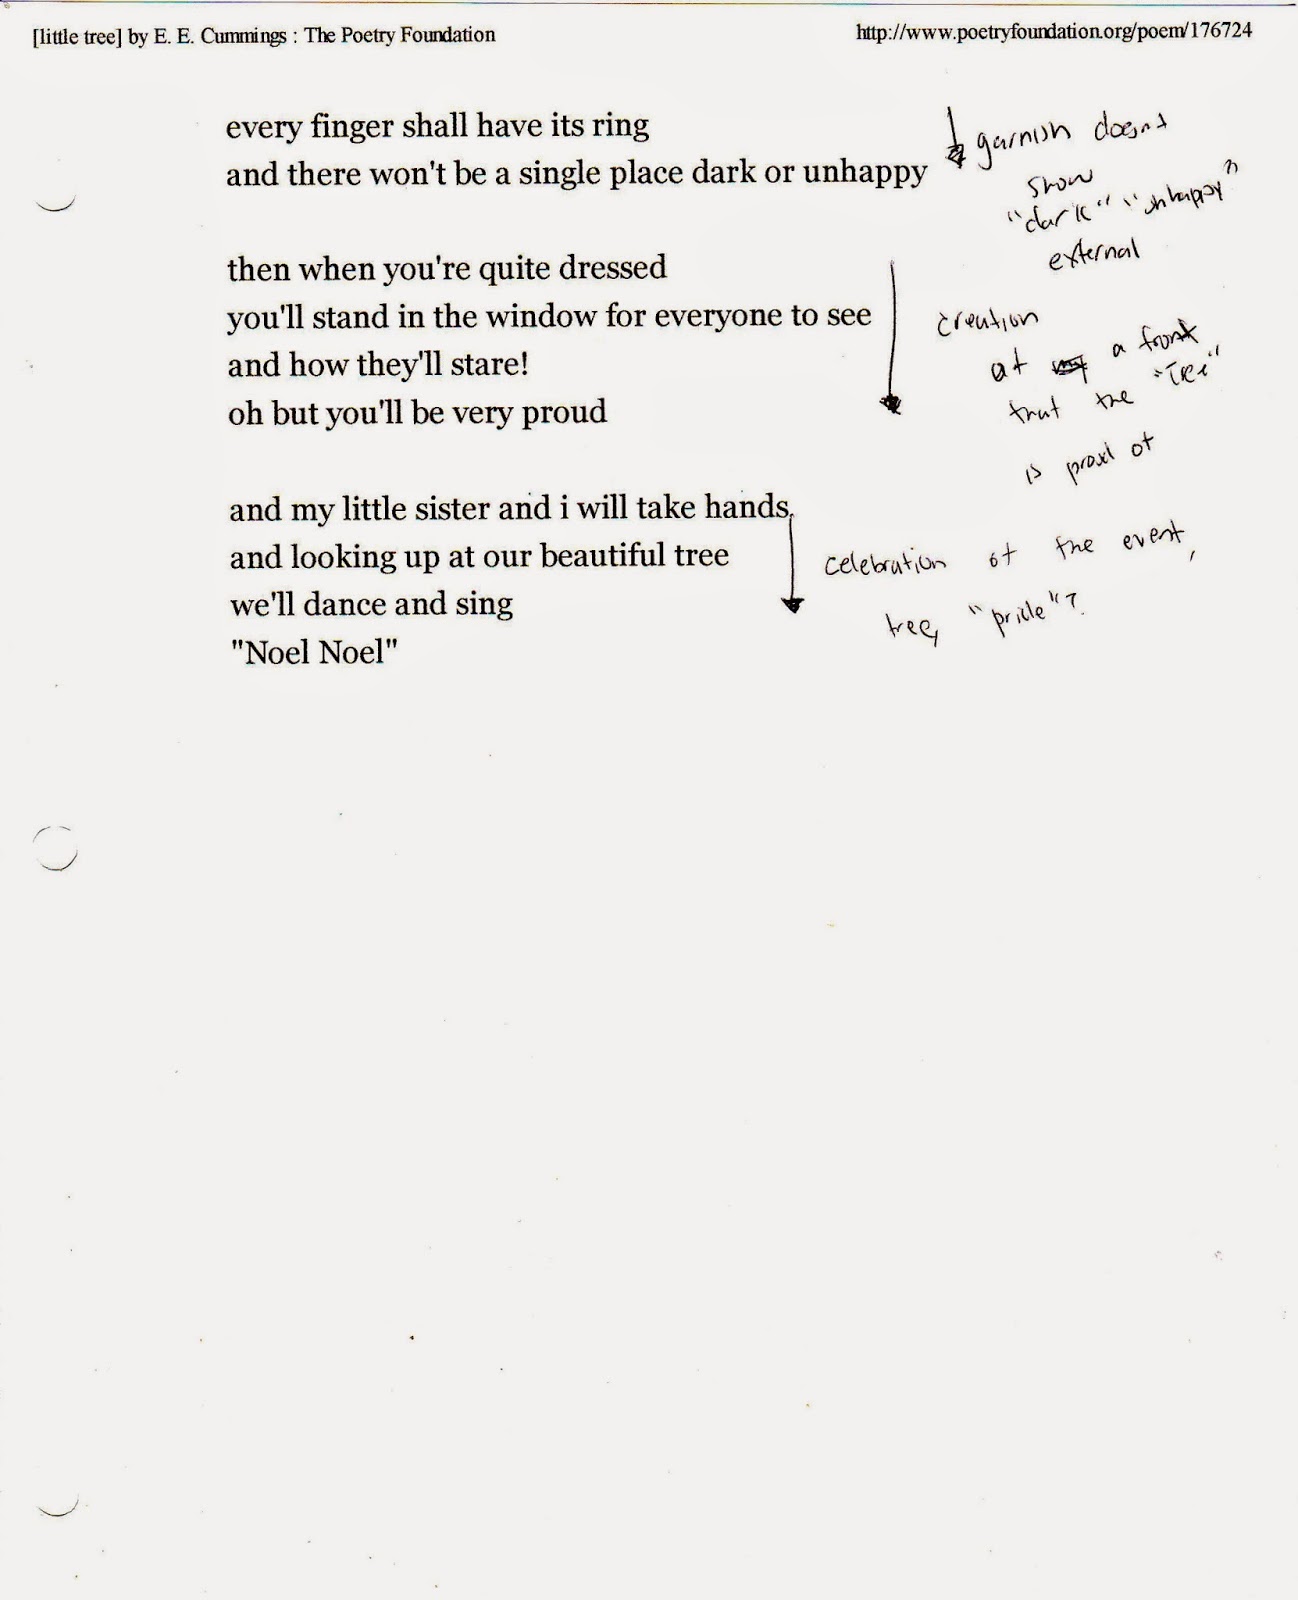 [little tree] by E. E. Cummings : The Poetry Foundation
http://www.poetryfoundation.org/poem/176724
every finger shall have its ring
and there won't be a single place dark or unhappy
garnish doesnt
show
"dark" "unhappy"
external
then when you're quite dressed
you'll stand in the window for everyone to see
and how they'll stare!
oh but you'll be very proud
creation
of a front
that the "Tree"
is proud of
and my little sister and i will take hands
and looking up at our beautiful tree
we'll dance and sing
"Noel Noel"
celebration of the event,
tree, "pride"?